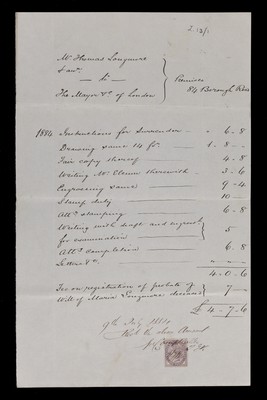 Mr Thomas Longmore
& anr.
— to —
The Mayor &c of London
Premises
84 Borough
1884 Instructions for Surrender — " 6 - 8
Drawing same 14 fo. 1 - 8 -
Fair copy thereof 4 - 8
Writing Mr therewith — 3 - 6
Engrossing same — 9 - 4
Stamp duty — 10 —
Attg stamping 6 - 8
Writing with draft and
for examination 5
Attg completion 6 . 8
Letters &c.
4 - 0 - 6
Fee on registration of probate of
Will of Maria Longmore deceased 7 —
£ 4 - 7 - 6
9th July 1884
the above Amount